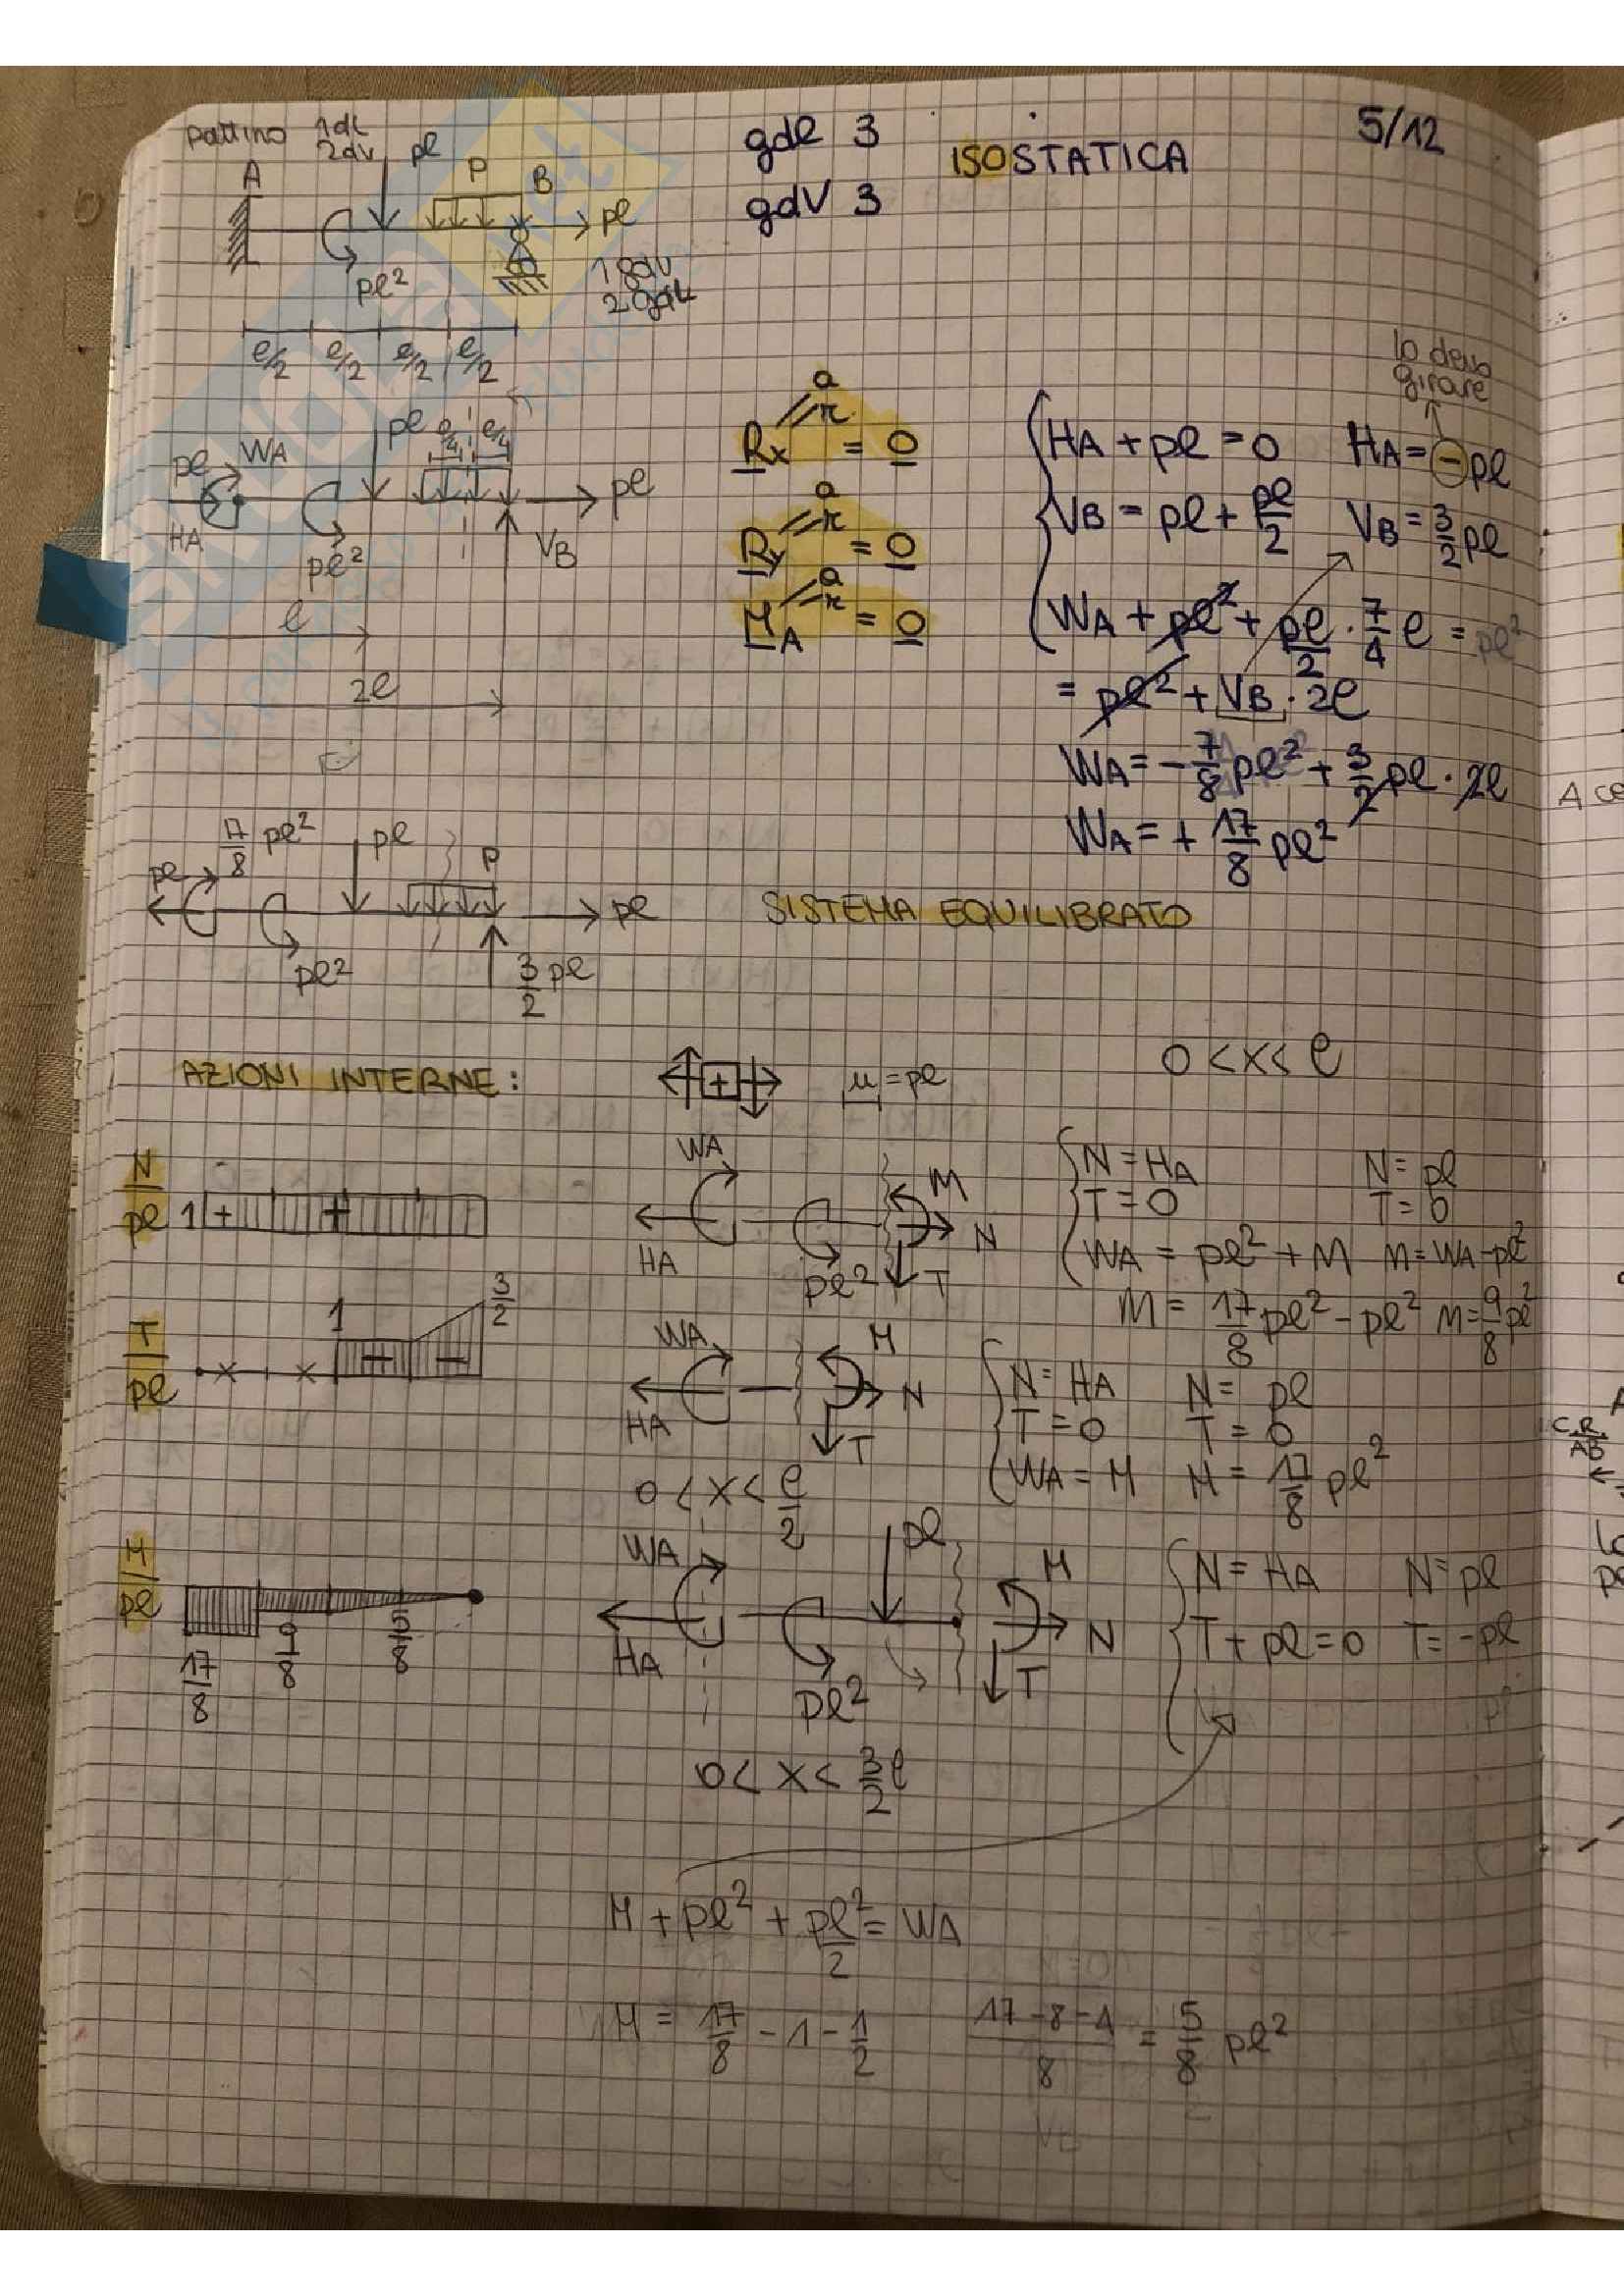 pattino 1dl
2dv
5/12
gdl 3
ISOSTATICA
gdV 3
A
pl
P
B
pl
pl²
1 gdv
2 gdl
l/2 l/2 l/2 l/2
lo devo
girare
pl WA
pl
l/4 l/4
pl
HA
pl²
VB
l
2l
Rx a r = 0
Ry a r = 0
MA a r = 0
HA + pl = 0 HA = -pl
VB = pl + pl/2 VB = 3/2 pl
WA + pl² + pl/2 · 7/4 l =
= pl² + VB · 2l
WA = - 7/8 pl² + 3/2 pl · 2l
WA = + 17/8 pl²
17/8 pl²
pl
pl
P
pl
pl²
3/2 pl
SISTEMA EQUILIBRATO
AZIONI INTERNE:
+
u = pl
0 < x < l
N/pl
1 + +
WA
M
N
HA
pl²
T
N = HA N = pl
T = 0 T = 0
WA = pl² + M M = WA - pl²
M = 17/8 pl² - pl² M = 9/8 pl²
T/pl
1
3/2
- -
WA
M
N
HA
T
N = HA N = pl
T = 0 T = 0
WA = M M = 17/8 pl²
0 < x < l/2
M/pl
17/8
9/8
5/8
WA
pl
M
N
HA
pl²
T
N = HA N = pl
T + pl = 0 T = -pl
0 < x < 3/2 l
M + pl² + pl²/2 = WA
M = 17/8 - 1 - 1/2
17 - 8 - 4 / 8 = 5/8 pl²